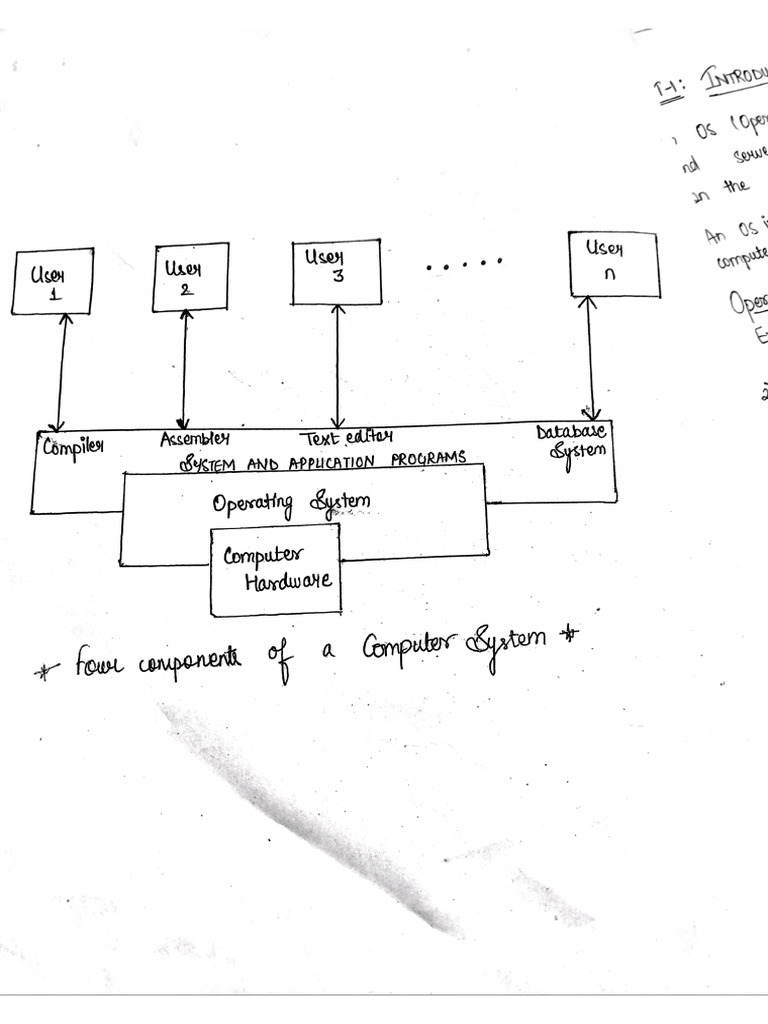 T-1: INTRODU
, OS (Oper
nd serve
in the
An OS i
compute
Oper
E
2
User
1
User
2
User
3
.....
User
n
Compiler Assembler Text editor Database
System
SYSTEM AND APPLICATION PROGRAMS
Operating System
Computer
Hardware
* Four components of a Computer System *